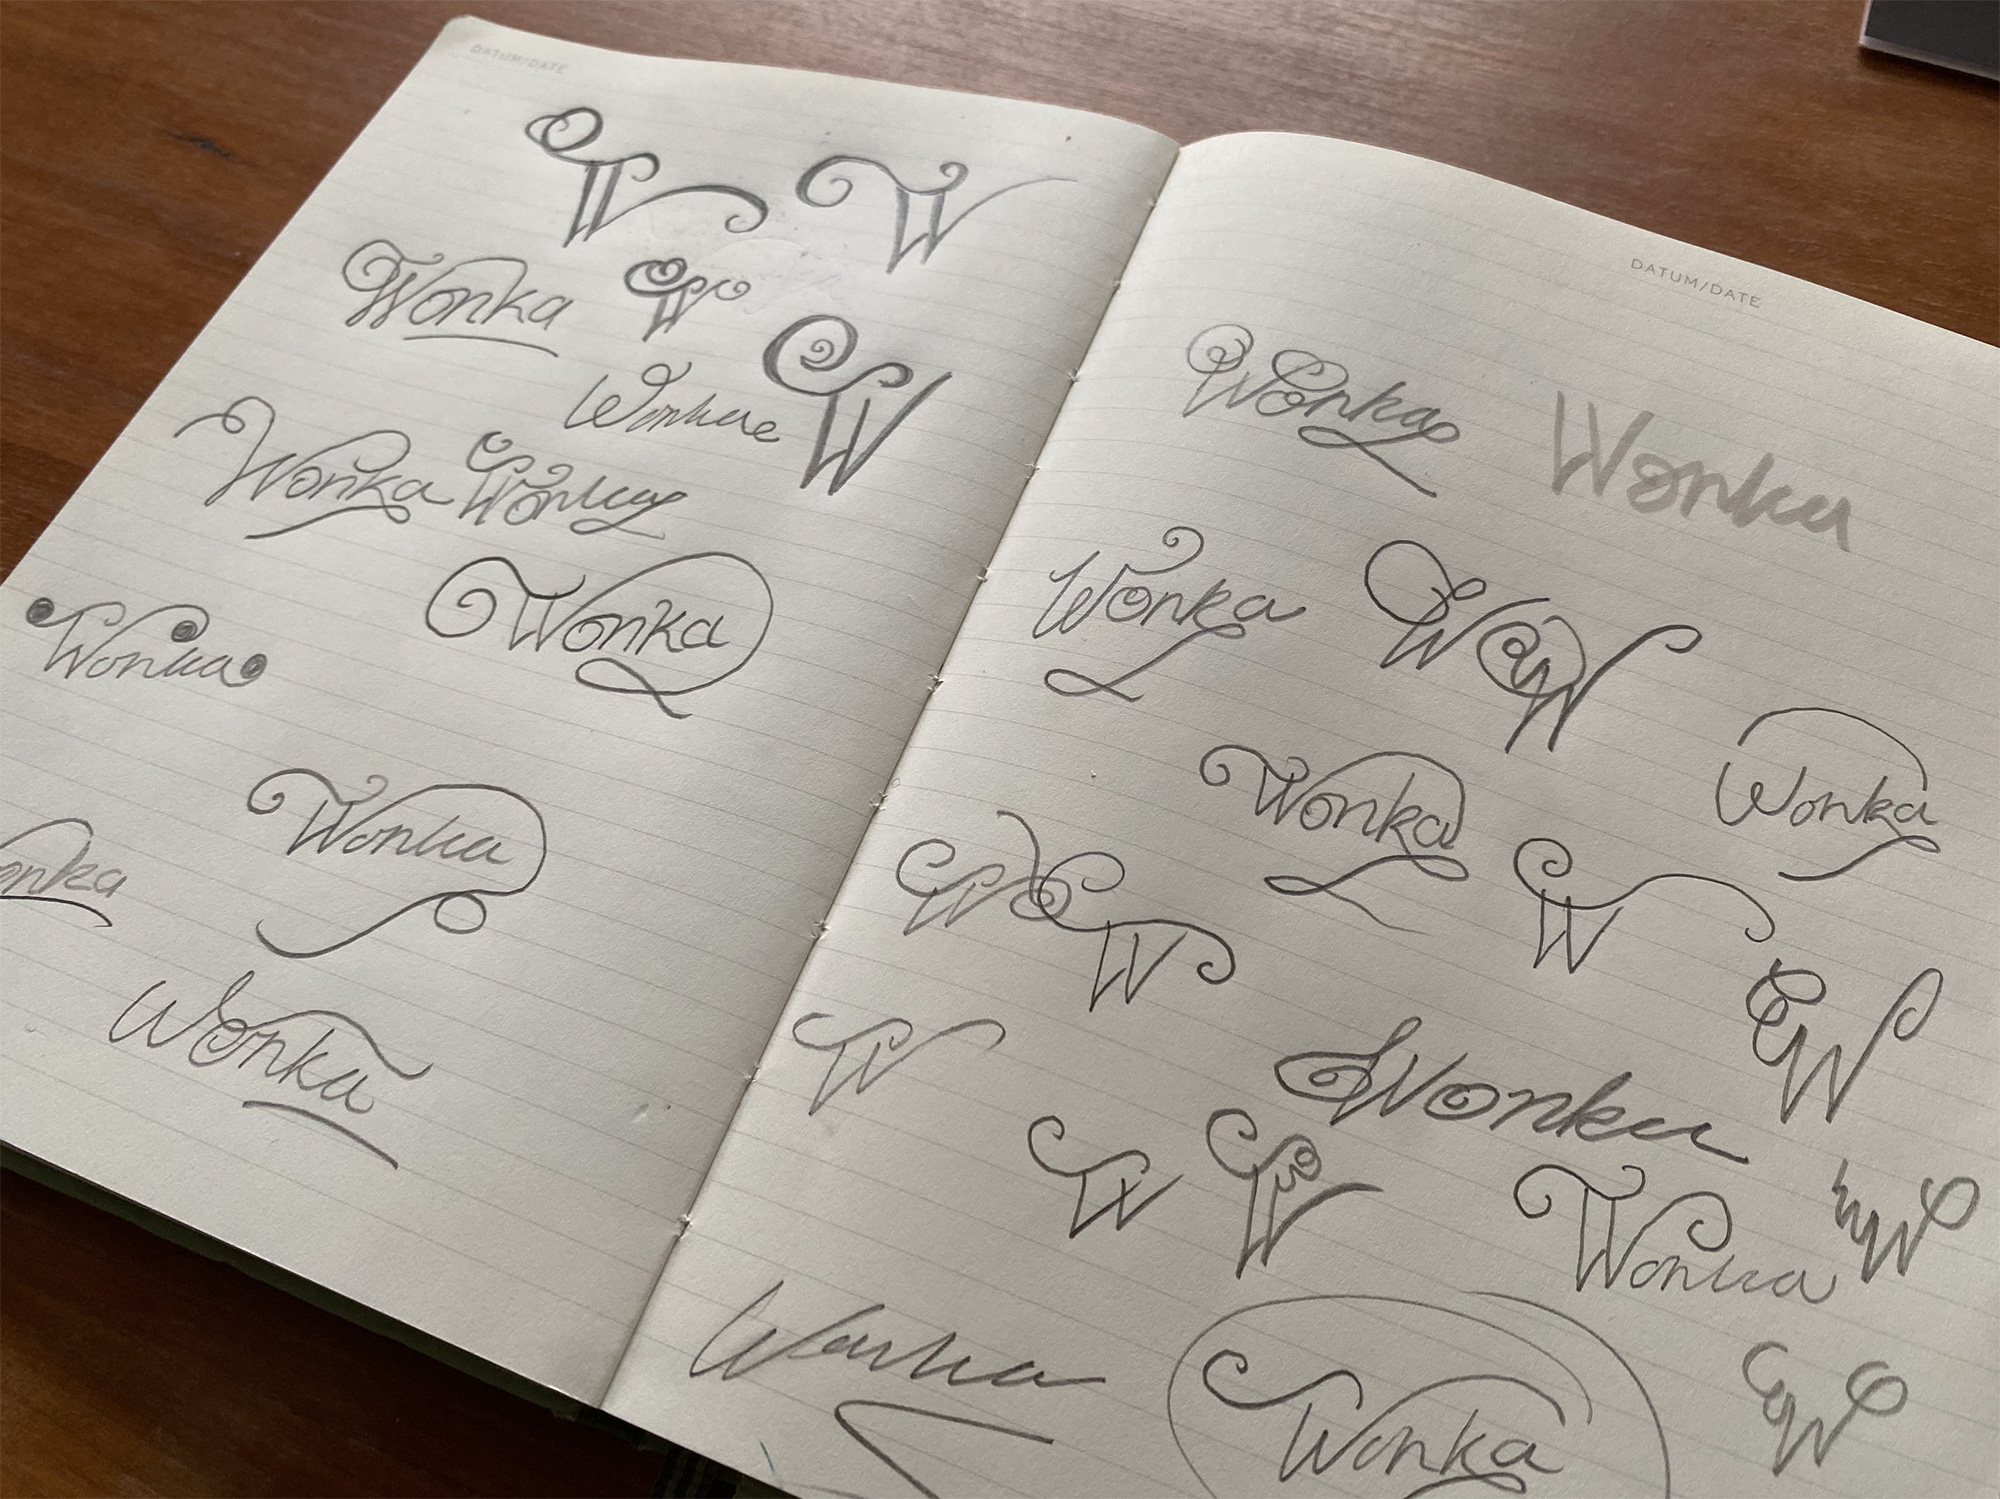 DATUM/DATE
W W
Wonka W
W
Wonkae
Wonka Wonka
Wonka
Wonka
Wonka
onka
Wonka
DATUM/DATE
Wonka Wonka
Wonka W W
Wonka
Wonka
W W
W
W
W
Wonka
W W
Wonka W
Wonka
Wonka
W